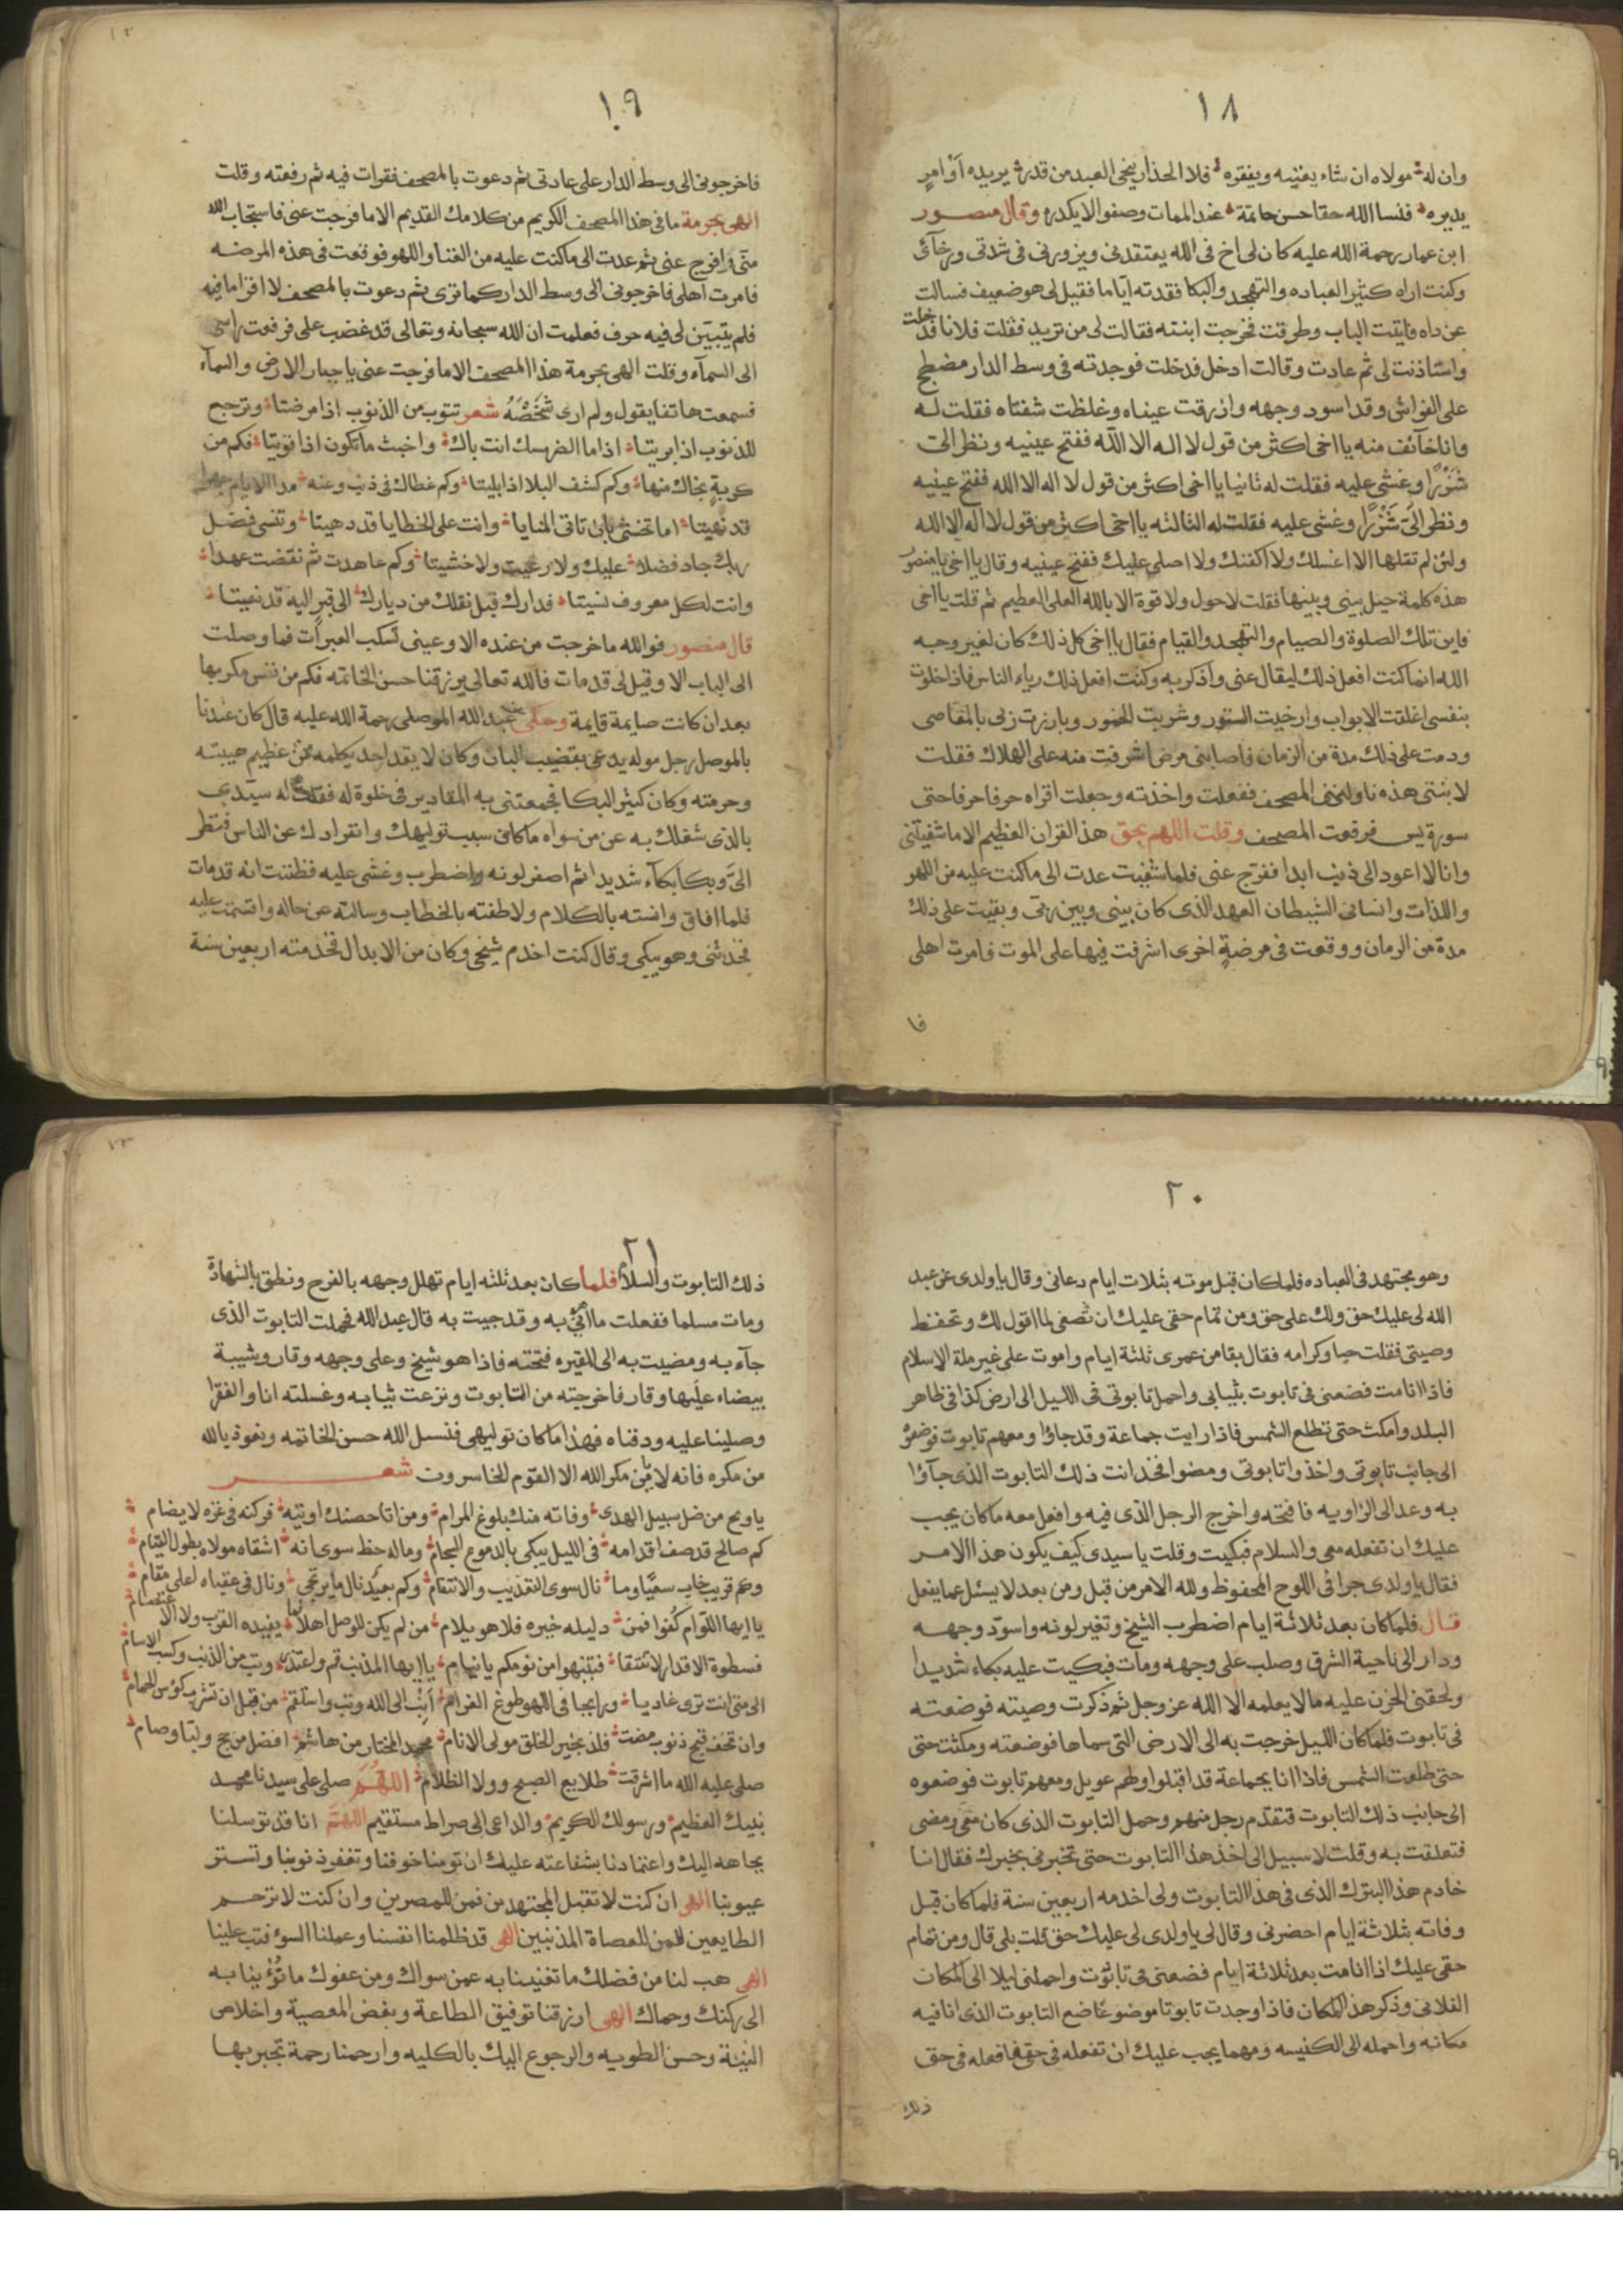 ١٨
وان له مولاه ان شاء يغنيه ويفقره فلا الحذار ينجى العبد من قدر يريده أوامرٍ
يدبره فنسا الله حقا حسن خاتمة عند الممات وصفوالايكدره وقال منصور
ابن عمار رحمة الله عليه كان لى اخ فى الله يعتقدنى ويزورنى فى شدتى ورخآئ
وكنت اراه كثير العباده والتهجد والبكا فقدته اياما فقيل لى هو ضعيف فسالت
عن داه فاتيت الباب وطرقت فخرجت ابنته فقالت لى من تريد فقلت فلانا قد خلت
واستاذنت لى ثم عادت وقالت ادخل فدخلت فوجدته فى وسط الدار مضطجع
على الفراش وقد اسود وجهه وازرقت عيناه وغلظت شفتاه فقلت له
وانا خآئف منه يا اخى اكثر من قول لا اله الا الله ففتح عينيه ونظر الىّ
شَزْرًا وغشى عليه فقلت له ثانيا يا اخى اكثر من قول لا اله الا الله ففتح عينيه
ونظر الىّ شَزْرًا وغشى عليه فقلت له الثالثه يا اخى اكثر من قول لا اله الا الله
ولئن لم تقلها الا اغسلك ولا اكفنك ولا اصلى عليك ففتح عينيه وقال يا اخى يا منصور
هذه كلمة حيل بينى وبينها فقلت لاحول ولا قوة الا بالله العلى العظيم ثم قلت يا اخى
فاين تلك الصلوة والصيام والتهجد والقيام فقال يا اخى كل ذلك كان لغير وجه
الله انما كنت افعل ذلك ليقال عنى واذكر به وكنت افعل ذلك رياء الناس فاذا خلوت
بنفسى اغلقت الابواب وارخيت الستور وشربت الخمور وبارزت ربى بالمعاصى
ودمت على ذلك مدة من الزمان فاصابنى مرض اشرفت منه على الهلاك فقلت
لابنتى هذه ناولينى المصحف ففعلت واخذته وجعلت اقراه حرفا حرفا حتى
سورة يس فرفعت المصحف وقلت اللهم بحق هذ القران العظيم الا ما شفيتنى
وانا لا اعود الى ذنب ابدا ففرج عنى فلما شفيت عدت الى ما كنت عليه من اللهو
واللذات وانسانى الشيطان العهد الذى كان بينى وبين ربى وبقيت على ذلك
مدة من الزمان ووقعت فى مرضةٍ اخرى اشرفت فيها على الموت فامرت اهلى
فا
١٩
فاخرجونى الى وسط الدار على عادتى ثم دعوت بالمصحف فقرات فيه ثم رفعته وقلت
الهى بحرمة ما فى هذا المصحف الكريم من كلامك القديم الا ما فرجت عنى فاستجاب الله
منى وافرج عنى ثم عدت الى ما كنت عليه من الغنا واللهو فوقعت فى هذه المرضه
فامرت اهلى فاخرجونى الى وسط الدار كما ترى ثم دعوت بالمصحف لا اقرا ما فيه
فلم يتبيّن لى فيه حرف فعلمت ان الله سبحانه وتعالى قد غضب على فرفعت راسى
الى السمآء وقلت الهى بحرمة هذا المصحف الا ما فرجت عنى يا جبار الارض والسمآء
فسمعت هاتفا يقول ولم ارى شَخْصَهُ شعر تتوب من الذنوب اذا مرضتا وترجع
للذنوب اذا بريتا اذا ما الضر مسك انت باك واخبث ما تكون اذا قويتا فكم من
كربةٍ نجاك منها وكم كشف البلا اذا بليتا وكم غطاك فى ذنب وعنه مدا الايام
قد نهيتا اما تخشى بان تاتى المنايا وانت على الخطايا قد دهيتا وتنسى فضل
ربك جاد فضلا عليك ولا رعيت ولا خشيتا وكم عاهدت ثم نقضت عهدا
وانت لكل معروف نسيتا فدارك قبل نقلك من ديارك الى قبرٍ اليه قد نعيتا
قال منصور فوالله ما خرجت من عنده الا وعينى تسكب العبرات فما وصلت
الى الباب الا وقيل لى قد مات فالله تعالى يرزقنا حسن الخاتمه فكم من نفس مكر بها
بعد ان كانت صايمة قايمة وحكى عبد الله الموصلى رحمة الله عليه قال كان عندنا
بالموصل رجل موله يدعى بقضيب البان وكان لا يقد احد يكلمه من عظيم هيبته
وحرمته وكان كثير البكا فجمعتنى به المقادير فى خلوة له فقلت له سيّدى
بالذى شغلك به عن من سواه ما كانى سبب توليهك وانفرادك عن الناس فنظر
الىّ وبكا بكآء شديدا ثم اصفر لونه واضطرب وغشى عليه فظننت انه قد مات
فلما افاق وانسته بالكلام ولاطفته بالخطاب وسالته عن حاله واقسمت عليه
فحدثنى وهو يبكى وقال كنت اخدم شيخى وكان من الابدال فخدمته اربعين سنة
٢٠
وهو مجتهد فى العباده فلما كان قبل موته بثلاث ايام دعانى وقال يا ولدى عن عبد
الله لى عليك حق ولك على حق ومن تمام حقى عليك ان تصغى لما اقول لك وتحفظ
وصيتى فقلت حبا وكرامه فقال بقا من عمرى ثلثة ايام واموت على غير ملة الاسلام
فاذا انا مت فضعنى فى تابوت بثيابى واحمل تابوتى فى الليل الى ارض كذا فى ظاهر
البلد وامكث حتى تطلع الشمس فاذا رايت جماعة وقد جاؤا ومعهم تابوت فوضعوه
الى جانب تابوتى واخذوا تابوتى ومضوا فخد انت ذلك التابوت الذى جآؤا
به وعد الى الزاويه فافتحه واخرج الرجل الذى فيه وافعل معه ما كان يجب
عليك ان تفعله معى والسلام فبكيت وقلت يا سيدى كيف يكون هذا الامر
فقال يا ولدى جرا فى اللوح المحفوظ ولله الامر من قبل ومن بعد لا يسئل عما يفعل
قال فلما كان بعد ثلاثة ايام اضطرب الشيخ وتغير لونه واسوّد وجهه
ودار الى ناحية الشرق وصلب على وجهه ومات فبكيت عليه بكاء شديدا
ولحقنى الحزن عليه ما لا يعلمه الا الله عز وجل ثم ذكرت وصيته فوضعته
فى تابوت فلما كان الليل خرجت به الى الارض التى سماها فوضعته ومكثت حتى
حتى طلعت الشمس فاذا انا بجماعة قد اقبلوا ولهم عويل ومعهم تابوت فوضعوه
الى جانب ذلك التابوت فتقدّم رجل منهم وحمل التابوت الذى كان معى ومضى
فتعلقت به وقلت لا سبيل الى اخذ هذا التابوت حتى تخبرنى بخبرك فقال انا
خادم هذا البترك الذى فى هذا التابوت ولى اخدمه اربعين سنة فلما كان قبل
وفاته بثلاثة ايام احضرنى وقال لى يا ولدى لى عليك حق قلت بلى قال ومن تمام
حقى عليك اذا انا مت بعد ثلاثة ايام فضعنى فى تابوت واحملنى ليلا الى المكان
الفلانى وذكر هذا المكان فاذا وجدت تابوتا موضوعًا ضع التابوت الذى انا فيه
مكانه واحمله الى الكنيسه ومهما يجب عليك ان تفعله فى حقى فافعله فى حق
ذلك
٢١
ذلك التابوت والسلام فلما كان بعد ثلثه ايام تهلل وجهه بالفرح ونطق بالشهادة
ومات مسلما ففعلت ما به وقد جيت به قال عبد الله فحملت التابوت الذى
جآء به ومضيت به الى المقبره فتحته فاذا هو شيخ وعلى وجهه وقار وشيبة
بيضاء عليها وقار فاخرجته من التابوت ونزعت ثيابه وغسلته انا والفقرا
وصلينا عليه ودفناه فهذا ما كان توليهى فنسل الله حسن الخاتمه ونعوذ بالله
من مكره فانه لا يأمن مكر الله الا القوم الخاسرون شعر
يا ويح من ضل سبيل الهدى وفاته منك بلوغ المرام ومن اتا حصنك اويته فركنه فى عزه لا يضام
كم صالح قد صف اقدامه فى الليل يبكى بالدموع السجام وماله حظ سوى انه اشقاه مولاه بطول القيام
وكم قريب خاب سعيًا وما نال سوى التعذيب والانتقام وكم بعيد نال ما يرتجى ونال فى عقباه اعلى مقام
يا ايها اللوّام كُفوا فمن دليله خيره فلا هو يلام من لم يكن للوصل اهلا يفيده القرب ولا الاعتصام
فسطوة الاقدار لا تتقا فتنبهوا من نومكم يا نيام يا ايها المذنب قم واعتذر وتب من الذنب وكسب الاسام
الى متى انت ترى غاديا ورايحا فى اللهو طوع الغرام أنِبْ الى الله وتب واستقم من قبل ان تشرب كؤس الحمام
وان تخف قبح ذنوب مضت فلذ بخير الخلق مولى الانام محمد المختار من هاشم افضل من حج ولبّا وصام
صلى عليه الله ما اشرقت طلايع الصبح وولا الظلام اللهُمَّ صلى على سيدنا محمد
نبيك العظيم ورسولك الكريم والداعى الى صراط مستقيم اللهمَّ انا قد توسلنا
بجاهه اليك واعتمادنا بشفاعته عليك ان تومنا خوفنا وتغفر ذنوبنا وتستر
عيوبنا الهى ان كنت لا تقبل المجتهدين فمن للمصرين وان كنت لا ترحم
الطايعين فمن للعصاة المذنبين الهى قد ظلمنا انفسنا وعملنا السوء فتب علينا
الهى هب لنا من فضلك ما تغنينا به عمن سواك ومن عفوك ما تؤينا به
الى ركنك وحماك الهى ارزقنا توفيق الطاعة وبغض المعصية واخلاص
النية وحسن الطويه والرجوع اليك بالكليه وارحمنا رحمة تجبر بها